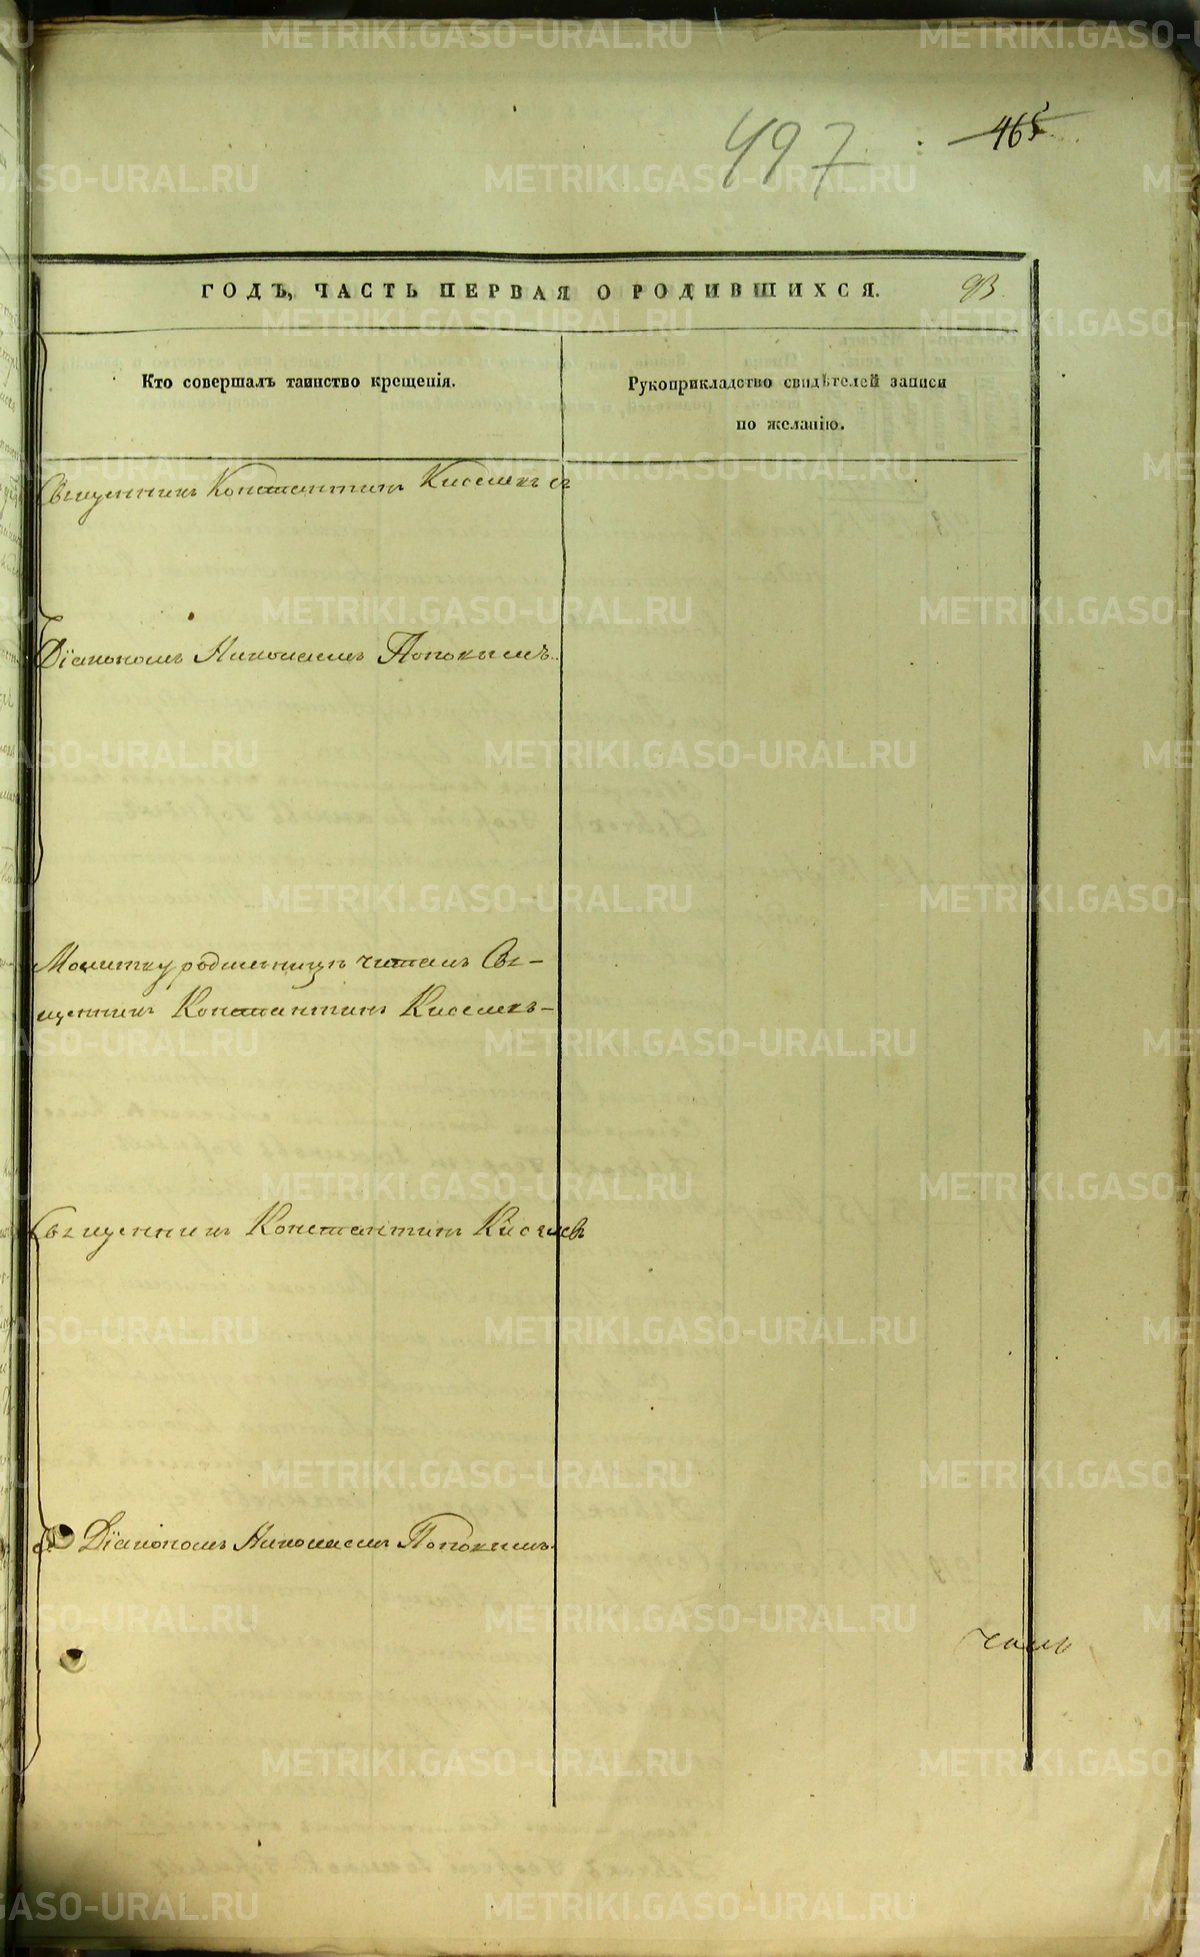 497
465
ГОДЪ, ЧАСТЬ ПЕРВАЯ О РОДИВШИХСЯ. 93
Кто совершалъ таинство крещенія.
Рукоприкладство свидѣтелей записи
по желанію.
Священникъ Константинъ Киселевъ
Діакономъ Николаемъ Поповымъ.
Молитву родильницѣ читалъ Свя-
щенникъ Константинъ Киселевъ
Священникъ Константинъ Киселевъ
Діакономъ Николаемъ Поповымъ.
METRIKI.GASO-URAL.RU